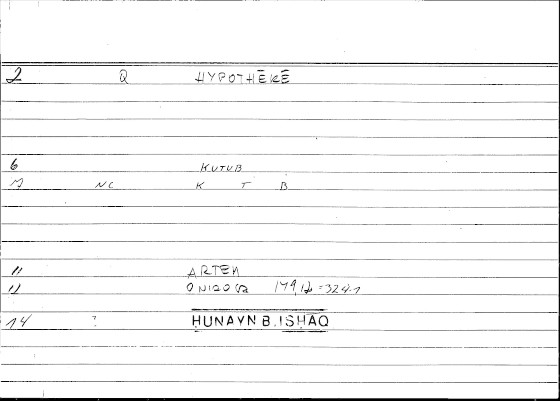 2 Q HYPOTHĒKĒ
6 KUTUB
7 NC K T B
11 ARTEM
12 ONIROCR 179,12 = 324.1
14 ? HUNAYN B. ISHAQ